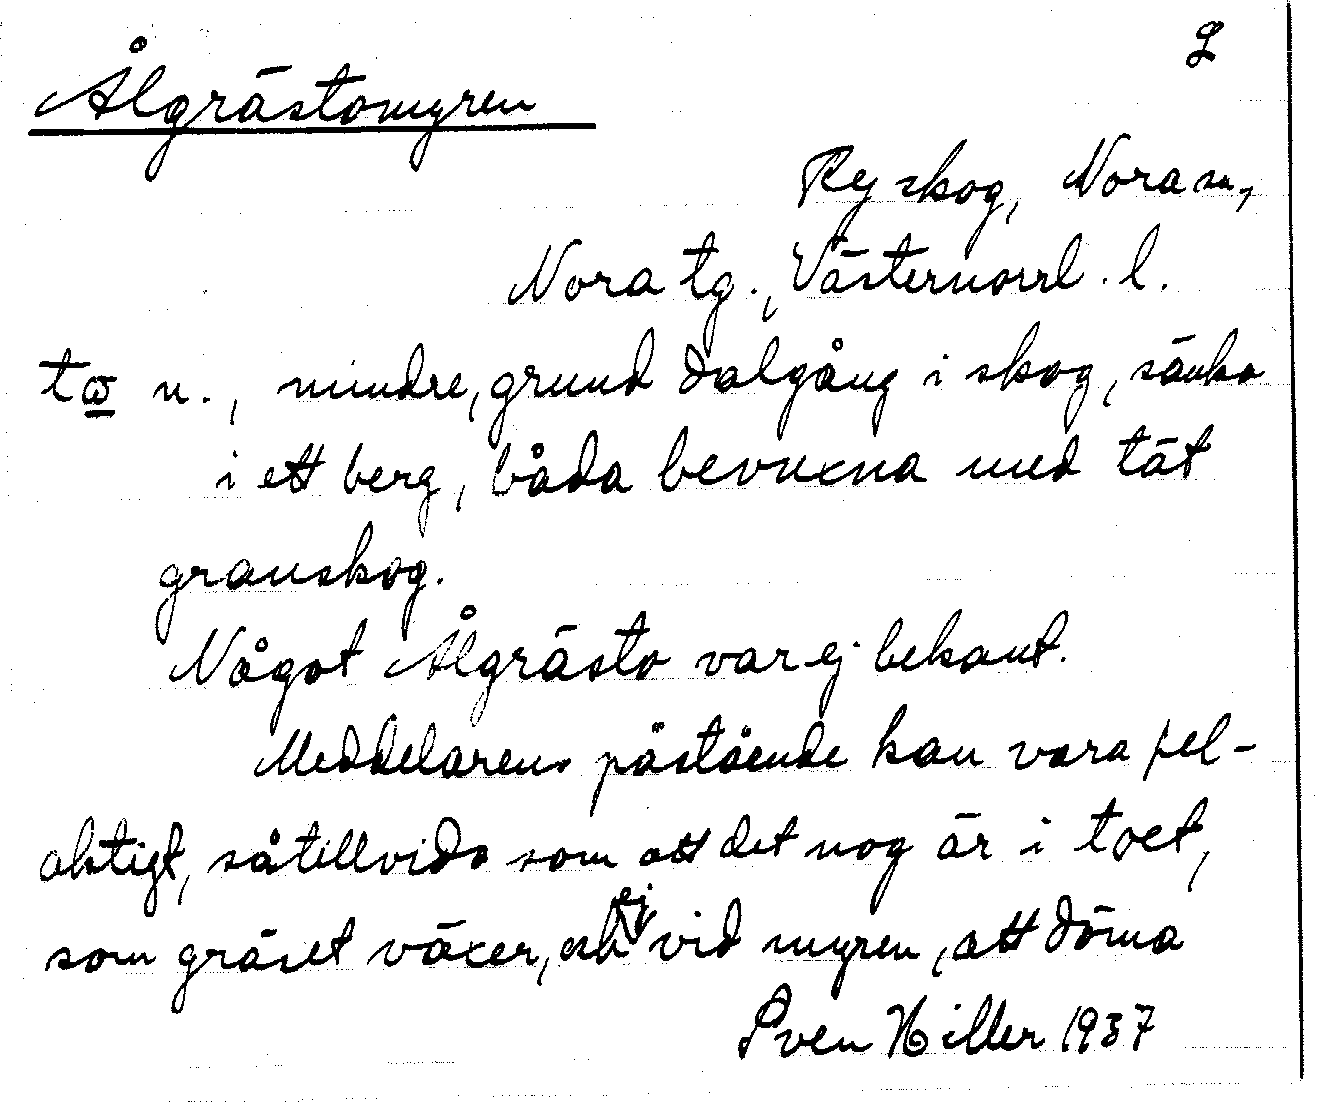 2
Ålgrästomyren
Ryskog, Nora sn,
Nora tg., Västernorrl. l.
tω n., mindre, grund dalgång i skog, sänka
i ett berg, båda bevuxna med tät
granskog.
Något Ålgrästo var ej bekant.
Meddelarens påstående kan vara fel-
aktigt, såtillvida som att det nog är i toet,
som gräset växer, och ej vid myren, att döma
Sven Hiller 1937